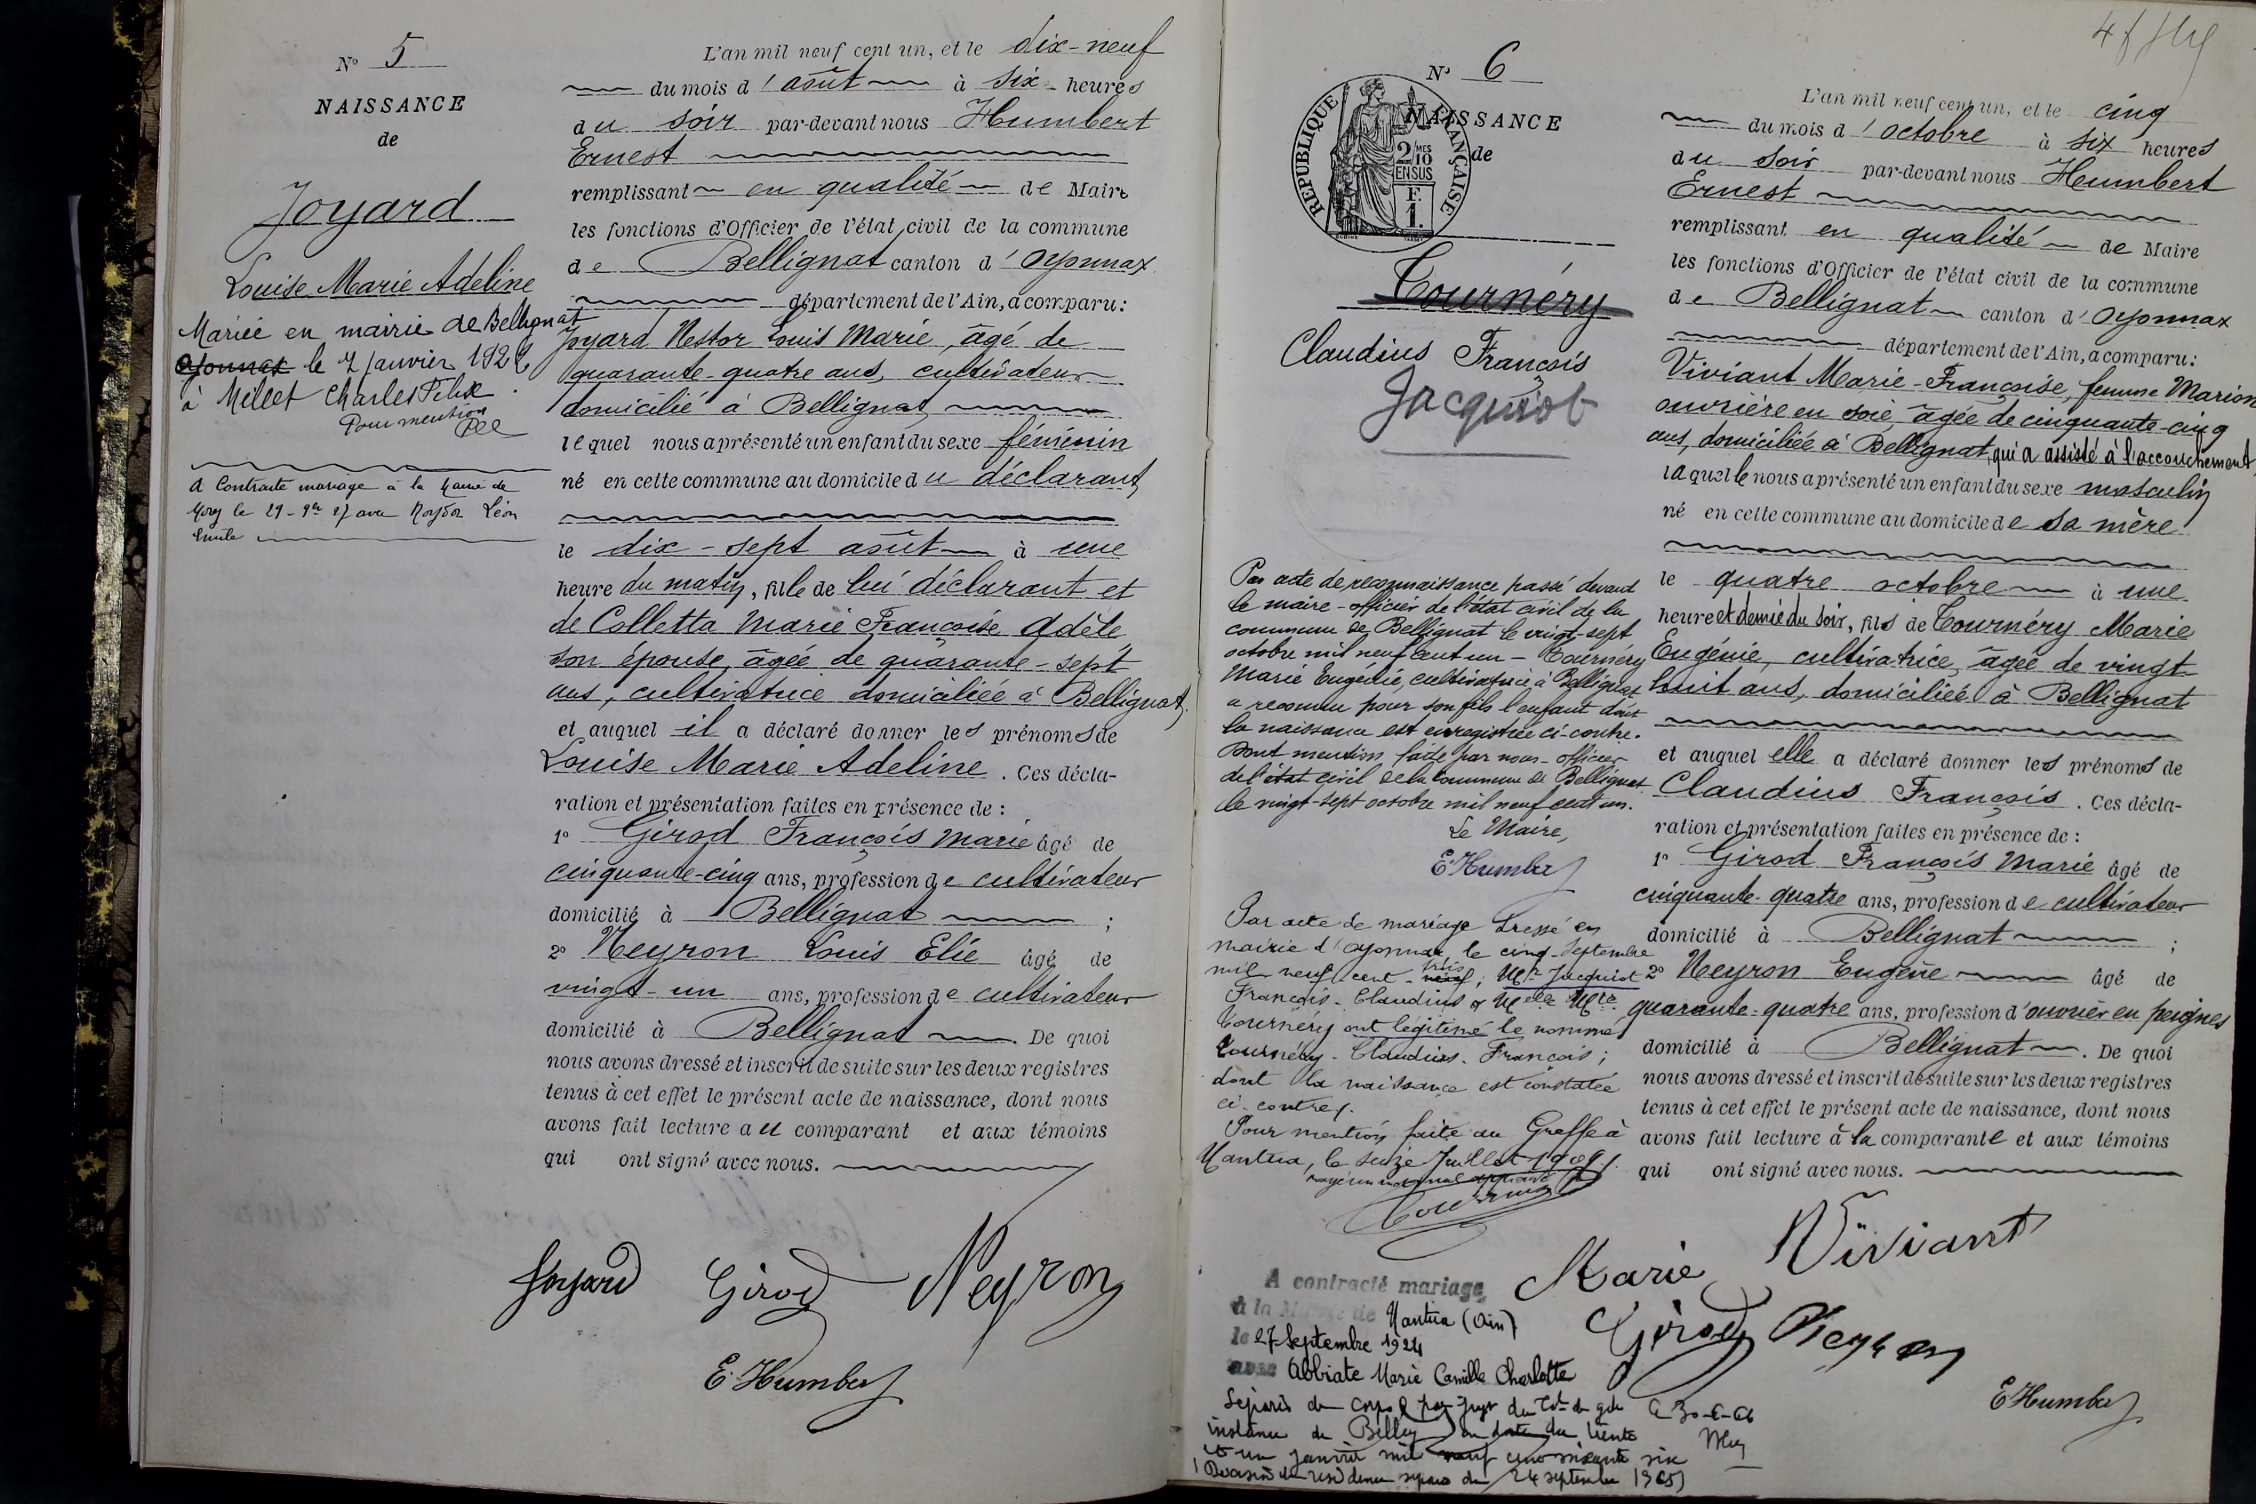 N° 5
NAISSANCE
de
Joyard
Louise Marie Adeline
Mariée en mairie de Bellignat
Oyonnax le 7 Janvier 1922
à Millet Charles Félix
Pour mention
A Contracté mariage à la Mairie de
le 29 - 9bre 27 avec Léon
Emile
L'an mil neuf cent un, et le dix-neuf
du mois d'août à six heures
du soir par-devant nous Humbert
Ernest
remplissant en qualité de Maire
les fonctions d'Officier de l'état civil de la commune
de Bellignat canton d'Oyonnax
département de l'Ain, a comparu :
Joyard Nestor Louis Marie, âgé de
quarante-quatre ans, cultivateur
domicilié à Bellignat,
lequel nous a présenté un enfant du sexe féminin
né en cette commune au domicile du déclarant,
le dix-sept août à une
heure du matin, fille de lui déclarant et
de Colletta Marie Françoise Adèle,
son épouse, âgée de quarante-sept
ans, cultivatrice domiciliée à Bellignat,
et auquel il a déclaré donner les prénoms de
Louise Marie Adeline. Ces décla-
ration et présentation faites en présence de :
1° Girod François Marie âgé de
cinquante-cinq ans, profession de cultivateur
domicilié à Bellignat ;
2° Neyron Louis Elie âgé de
vingt-un ans, profession de cultivateur
domicilié à Bellignat. De quoi
nous avons dressé et inscrit de suite sur les deux registres
tenus à cet effet le présent acte de naissance, dont nous
avons fait lecture au comparant et aux témoins
qui ont signé avec nous.
Joyard Girod Neyron
E. Humbert
N° 6
NAISSANCE
de
RÉPUBLIQUE FRANÇAISE
2/10MES
EN SUS
F.
1.
Tournéry
Claudius François
Jacquiot
Par acte de reconnaissance passé devant
le maire-officier de l'état civil de la
commune de Bellignat le vingt-sept
octobre mil neuf cent un - Tournéry
Marie Eugénie, cultivatrice à Bellignat
a reconnu pour son fils l'enfant dont
la naissance est enregistrée ci-contre.
Dont mention faite par nous-officier
de l'état civil de la Commune de Bellignat
le vingt-sept octobre mil neuf cent un.
Le Maire,
E. Humbert
Par acte de mariage dressé en
mairie d'Oyonnax le cinq Septembre
mil neuf cent neuf trois ; Mr Jacquiot
François-Claudius & Melle Mie
Tournéry ont légitimé le nommé
Tournéry-Claudius-François ;
dont la naissance est constatée
ci-contre.
Pour mention faite au Greffe à
Nantua, le seize Juillet 1909.
rayé un mot nul approuvé
A contracté mariage
à la Mairie de Nantua (Ain)
le 27 Septembre 1924
avec Abbiate Marie Camille Charlotte
Séparés de corps par jugt du Tal de gde
instance de Belley en date du trente
et un janvier mil neuf cent soixante six
(Ordonnance de résidence séparée du 24 septembre 1965)
Le 30-6-66
L'an mil neuf cent un, et le cinq
du mois d'octobre à six heures
du soir par-devant nous Humbert
Ernest
remplissant en qualité de Maire
les fonctions d'Officier de l'état civil de la commune
de Bellignat canton d'Oyonnax
département de l'Ain, a comparu :
Viviant Marie-Françoise, femme Marion
ouvrière en soie, âgée de cinquante-cinq
ans, domiciliée à Bellignat, qui a assisté à l'accouchement,
laquelle nous a présenté un enfant du sexe masculin
né en cette commune au domicile de sa mère
le quatre octobre à une
heure et demie du soir, fils de Tournéry Marie
Eugénie, cultivatrice, âgée de vingt
huit ans, domiciliée à Bellignat
et auquel elle a déclaré donner les prénoms de
Claudius François. Ces décla-
ration et présentation faites en présence de :
1° Girod François Marie âgé de
cinquante-quatre ans, profession de cultivateur
domicilié à Bellignat ;
2° Neyron Eugène âgé de
quarante-quatre ans, profession d'ouvrier en peignes
domicilié à Bellignat. De quoi
nous avons dressé et inscrit de suite sur les deux registres
tenus à cet effet le présent acte de naissance, dont nous
avons fait lecture à la comparante et aux témoins
qui ont signé avec nous.
Marie Viviant
Girod Neyron
E. Humbert